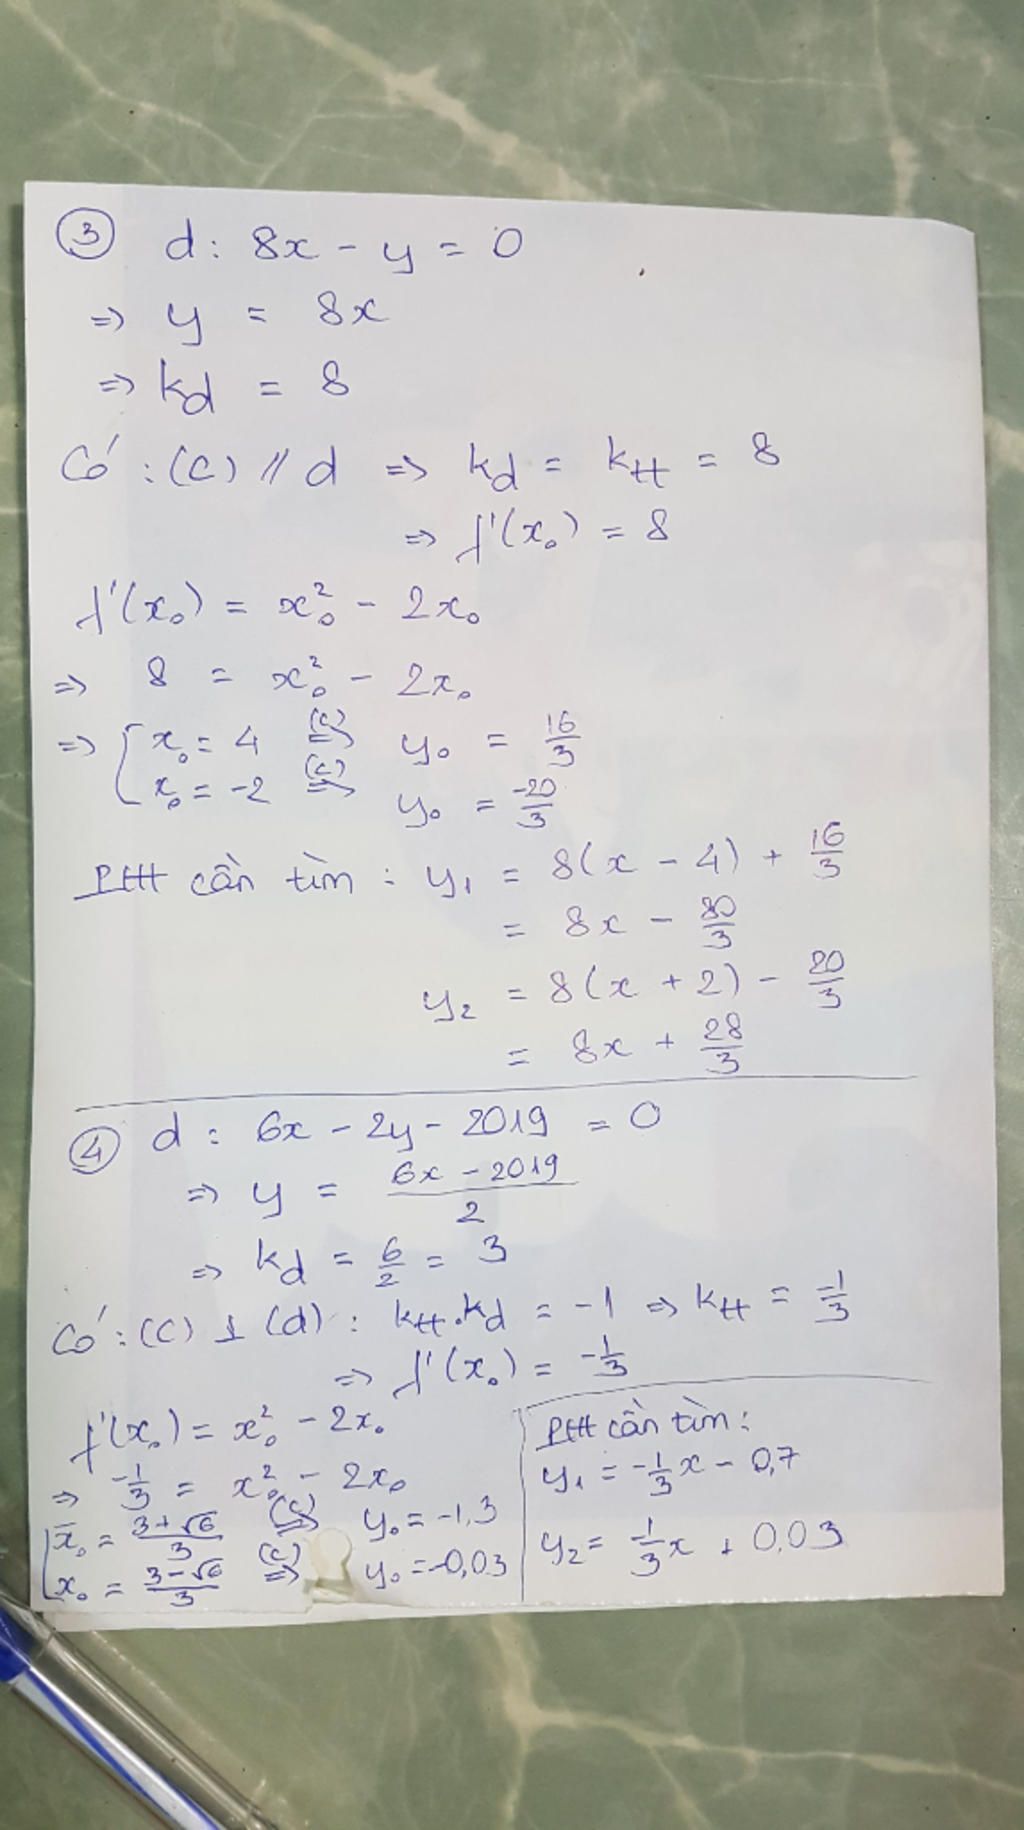 ③ d: 8x - y = 0
=> y = 8x
=> kd = 8
Có: (C) // d => kd = ktt = 8
=> f'(x₀) = 8
f'(x₀) = x₀² - 2x₀
=> 8 = x₀² - 2x₀
=> [ x₀ = 4 (C)=> y₀ = 16/3
x₀ = -2 (C)=> y₀ = -20/3
PTtt cần tìm: y₁ = 8(x - 4) + 16/3
= 8x - 80/3
y₂ = 8(x + 2) - 20/3
= 8x + 28/3
④ d: 6x - 2y - 2019 = 0
=> y = (6x - 2019)/2
=> kd = 6/2 = 3
Có: (C) ⊥ (d): ktt.kd = -1 => ktt = -1/3
=> f'(x₀) = -1/3
f'(x₀) = x₀² - 2x₀
=> -1/3 = x₀² - 2x₀
[ x₀ = (3+√6)/3 (C)=> y₀ = -1,3
x₀ = (3-√6)/3 (C)=> y₀ = -0,03
PTtt cần tìm:
y₁ = -1/3x - 0,7
y₂ = -1/3x + 0,03